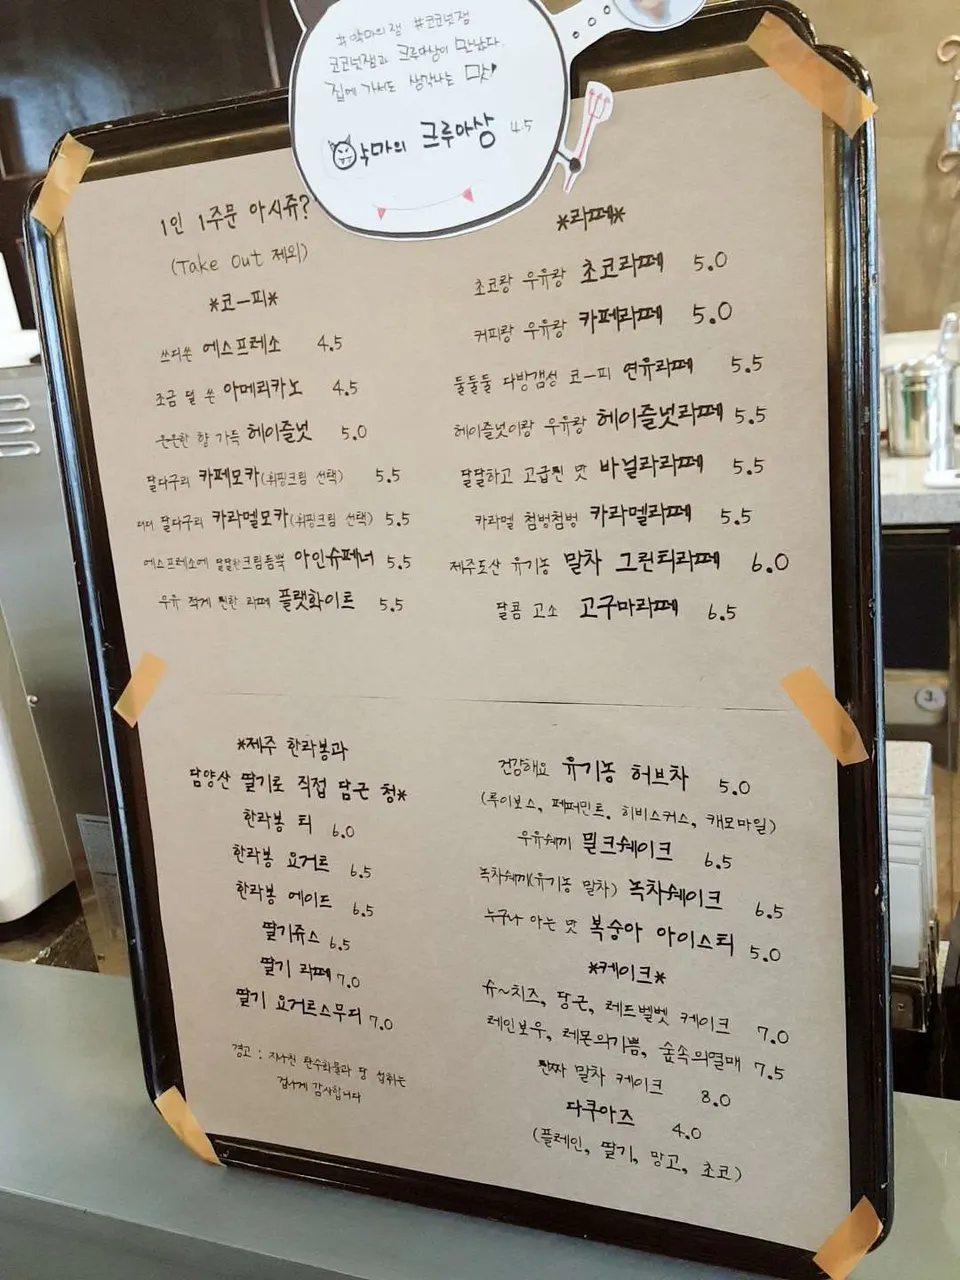 #악마의잼 #코코넛잼
코코넛잼과 크루아상이 만났다
집에 가서도 생각나는 맛!
악마의 크루아상 4.5
1인 1주문 아시쥬?
(Take Out 제외)
*코-피*
쓰디쓴 에스프레소 4.5
조금 덜 쓴 아메리카노 4.5
은은한 향 가득 헤이즐넛 5.0
달다구리 카페모카(휘핑크림 선택) 5.5
더더 달다구리 카라멜모카(휘핑크림 선택) 5.5
에스프레소에 달달한크림듬뿍 아인슈페너 5.5
우유 적게 찐한 라떼 플랫화이트 5.5
*라떼*
초코랑 우유랑 초코라떼 5.0
커피랑 우유랑 카페라떼 5.0
둘둘둘 다방갬성 코-피 연유라떼 5.5
헤이즐넛이랑 우유랑 헤이즐넛라떼 5.5
달달하고 고급찐 맛 바닐라라떼 5.5
카라멜 첨벙첨벙 카라멜라떼 5.5
제주도산 유기농 말차 그린티라떼 6.0
달콤 고소 고구마라떼 6.5
*제주 한라봉과
담양산 딸기로 직접 담근 청*
한라봉 티 6.0
한라봉 요거트 6.5
한라봉 에이드 6.5
딸기쥬스 6.5
딸기 라떼 7.0
딸기 요거트스무디 7.0
경고 : 지나친 탄수화물과 당 섭취는
겁나게 감사합니다
건강해요 유기농 허브차 5.0
(루이보스, 페퍼민트, 히비스커스, 캐모마일)
우유쉐끼 밀크쉐이크 6.5
녹차쉐끼(유기농 말차) 녹차쉐이크 6.5
누구나 아는 맛 복숭아 아이스티 5.0
*케이크*
슈~치즈, 당근, 레드벨벳 케이크 7.0
레인보우, 레몬의기쁨, 숲속의열매 7.5
찐짜 말차 케이크 8.0
다쿠아즈 4.0
(플레인, 딸기, 망고, 초코)
3.